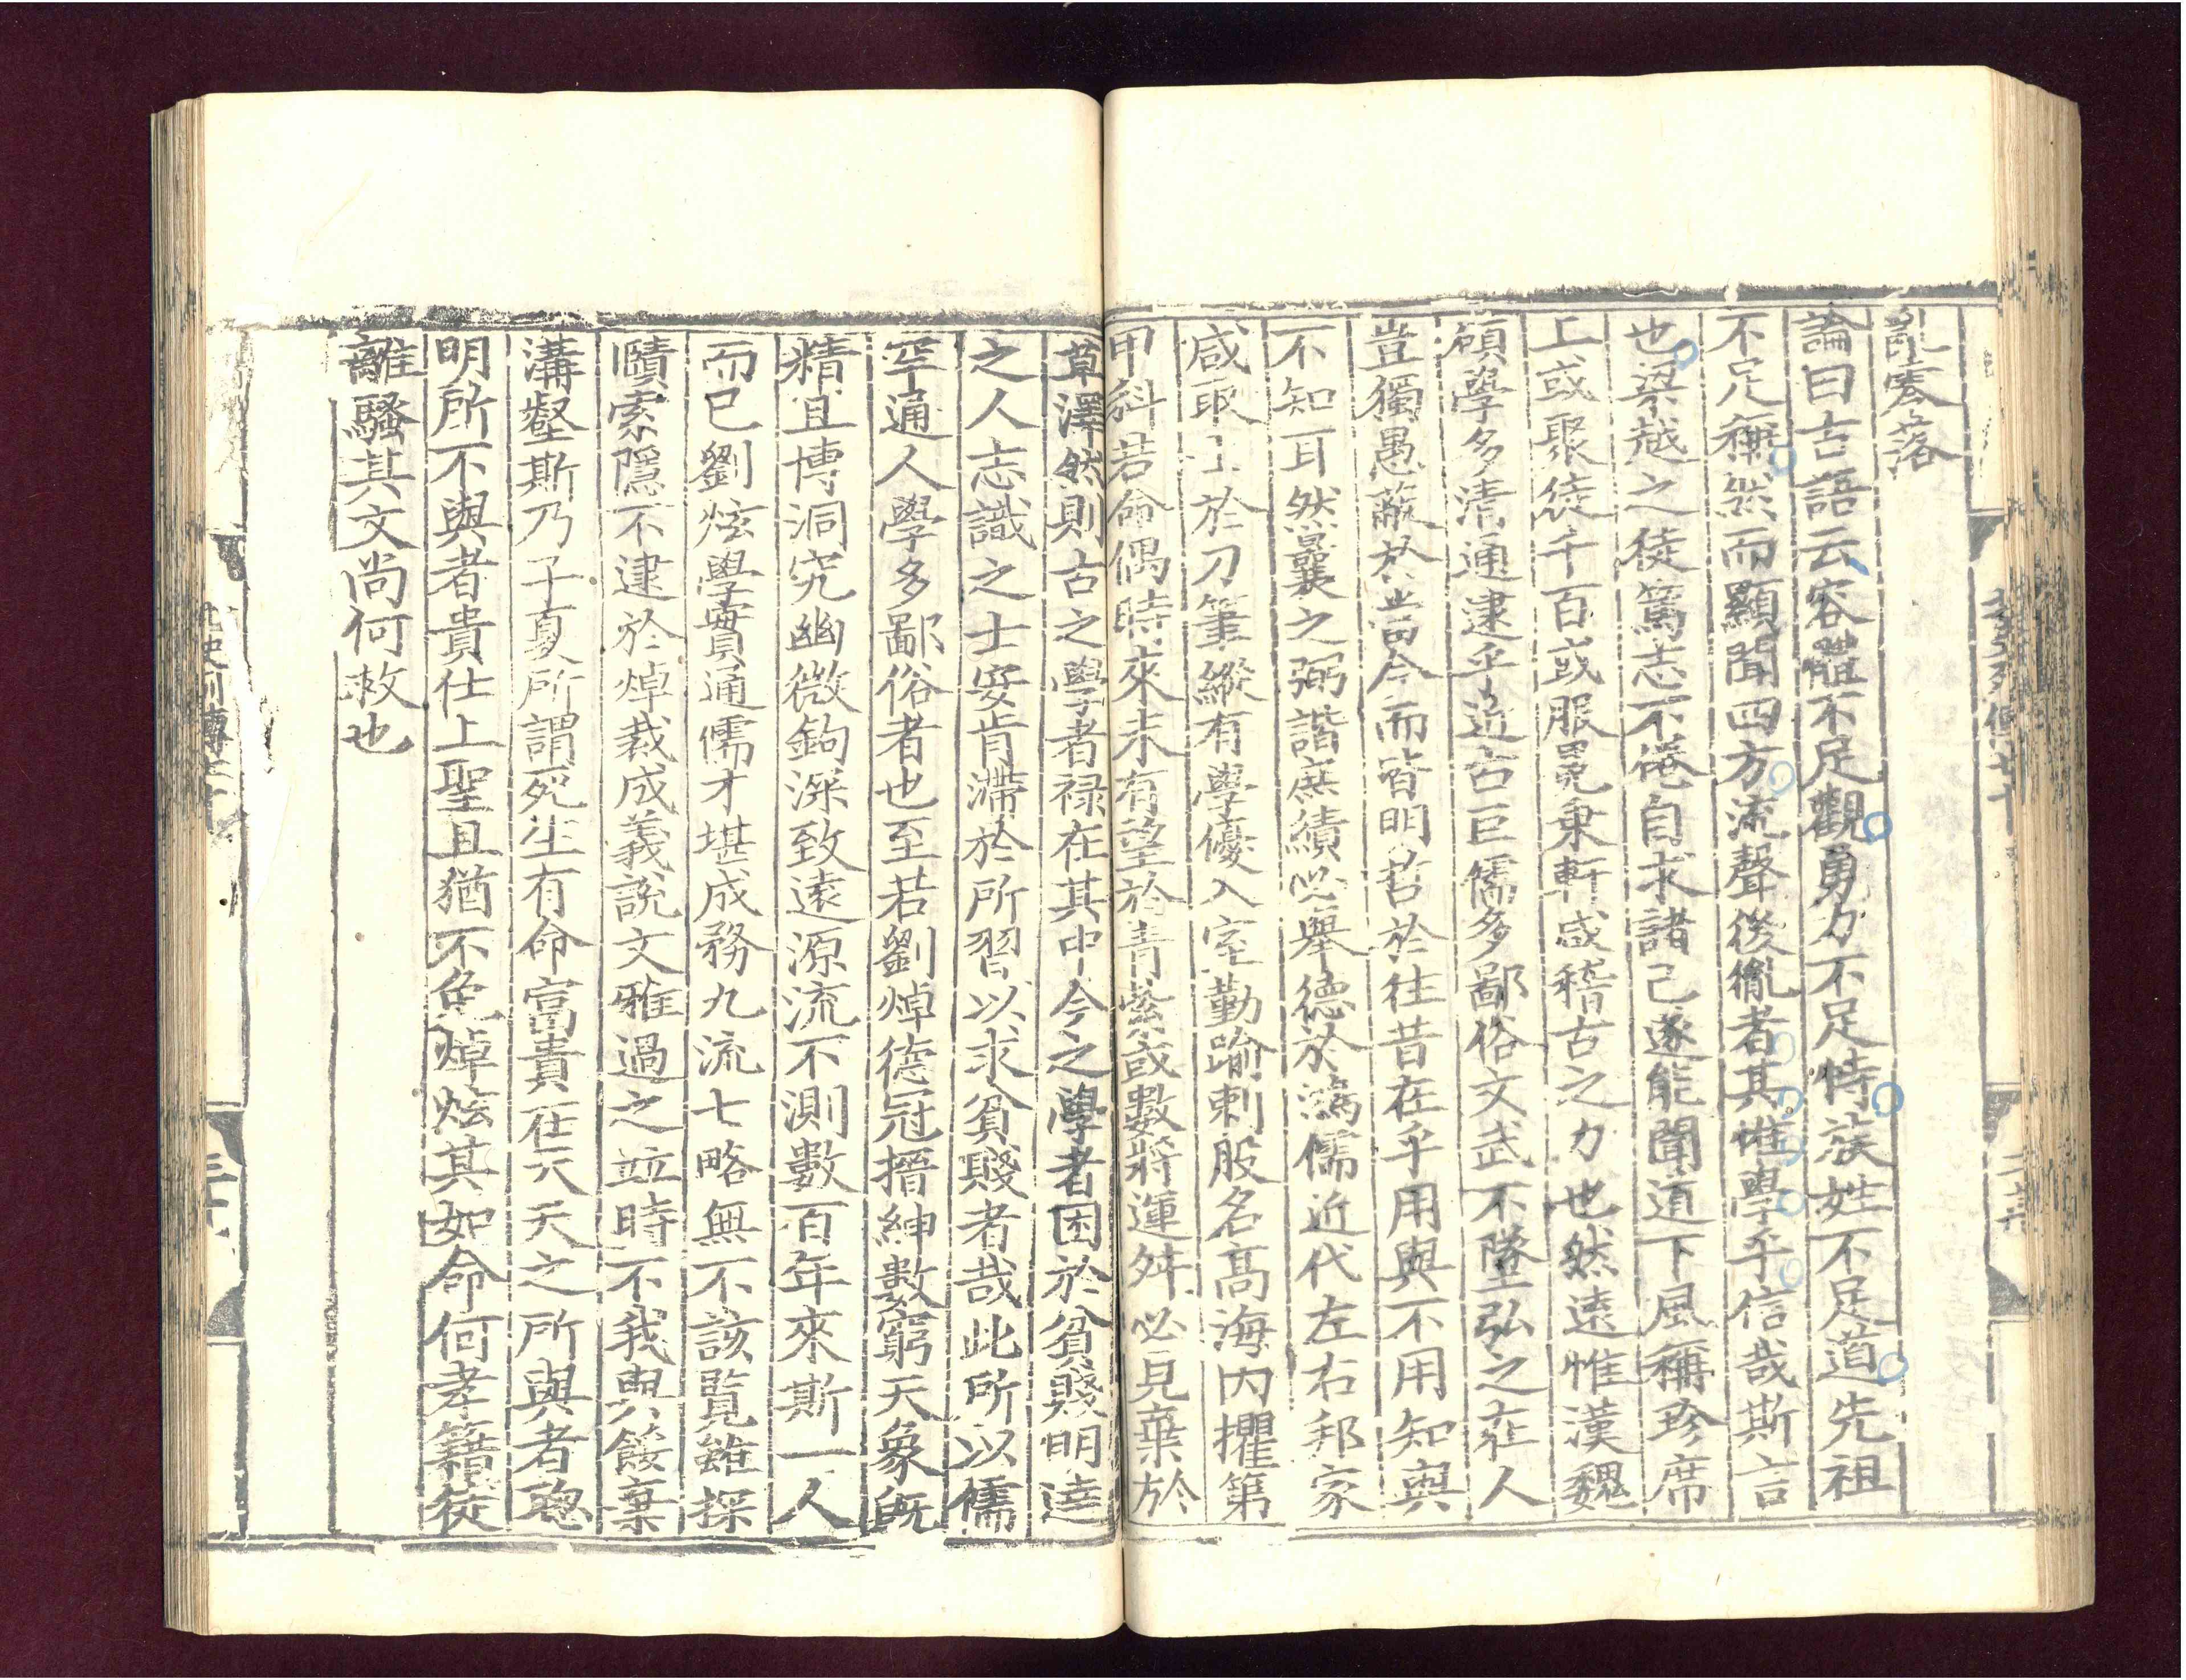 亂零落
論曰古語云容體不足觀勇力不足恃族姓不足道先祖
不足稱然而顯聞四方流聲後胤者其惟學乎信哉斯言
也梁越之徒篤志不倦自求諸己遂能聞道下風稱珍席
上或聚徒千百或服冕乗軒咸稽古之力也然遠惟漢魏
碩學多清通逮乎近古巨儒多鄙俗文武不墜弘之在人
豈獨愚蔽於當今而皆明哲於往昔在乎用與不用知與
不知耳然曩之弼諧庶績必舉德於鴻儒近代左右邦家
咸取士於刀筆縱有學優入室勤踰刺股名髙海内擢第
甲科若命偶時來未有望於青紫或數將運舛必見棄於
草澤然則古之學者禄在其中今之學者困於貧賤明達
之人志識之士安肯滯於所習以求貧賤者哉此所以儒
罕通人學多鄙俗者也至若劉焯德冠搢紳數窮天象旣
精且博洞究幽微鉤深致遠源流不測數百年來斯一人
而已劉炫學實通儒才堪成務九流七略無不該覧雖探
賾索隱不逮於焯裁成義說文雅過之並時不我與餒棄
溝壑斯乃子夏所謂死生有命富貴在天天之所與者聦
明所不與者貴仕上聖且猶不免焯炫其如命何孝籍徒
離騷其文尚何救也